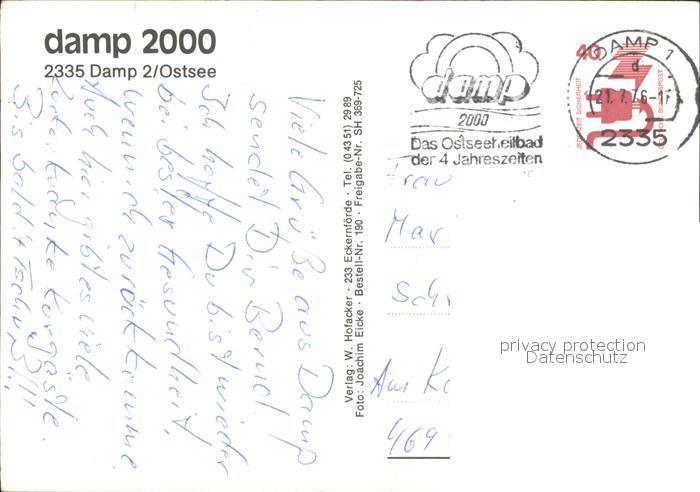 damp 2000
2335 Damp 2/Ostsee
Viele Grüße aus Damp
sendet Dir Bernd.
Ich hoffe Du bist wieder
bei bester Gesundheit,
wenn ich zurückkomme.
Auch hier gibt es viele
Kurgäste.
Bis bald! Tschüß!!!
Verlag: W. Hofacker · 233 Eckernförde · Tel. (0 43 51) 29 89
Foto: Joachim Eicke · Bestell-Nr. 190 · Freigabe-Nr. SH 369-725
damp
2000
Das Ostseeheilbad
der 4 Jahreszeiten
DAMP 1
d
21.7.76-17
2335
40
JEDERZEIT SICHERHEIT
DEUTSCHE BUNDESPOST
Frau
Mar
Sch
Am Ka
469
privacy protection
Datenschutz